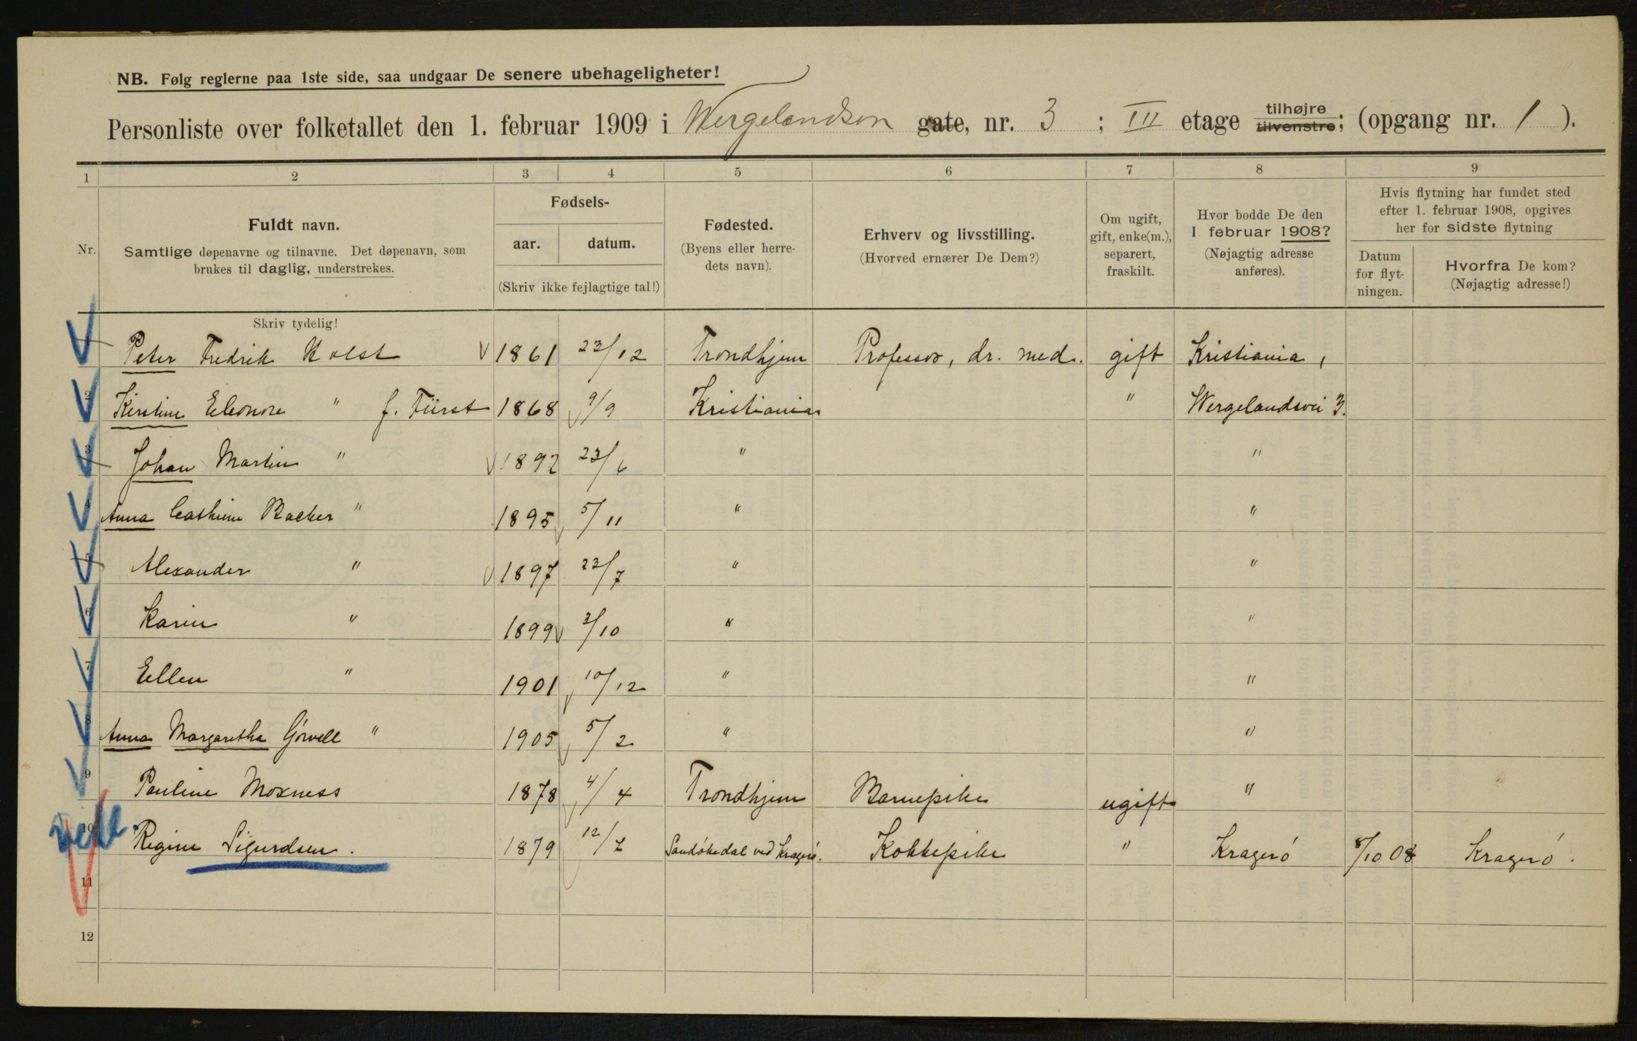 NB. Følg reglerne paa 1ste side, saa undgaar De senere ubehageligheter!
Personliste over folketallet den 1. februar 1909 i Wergelandsen gate, nr. 3 ; III etage tilhøjre tilvenstre; (opgang nr. 1 ).
1 2 3 4 5 6 7 8 9
Nr.
Fuldt navn.
Samtlige døpenavne og tilnavne. Det døpenavn, som
brukes til daglig, understrekes.
Fødsels-
aar. datum.
(Skriv ikke fejlagtige tal!)
Fødested.
(Byens eller herre-
dets navn).
Erhverv og livsstilling.
(Hvorved ernærer De Dem?)
Om ugift,
gift, enke(m.),
separert,
fraskilt.
Hvor bodde De den
1 februar 1908?
(Nøjagtig adresse
anføres).
Hvis flytning har fundet sted
efter 1. februar 1908, opgives
her for sidste flytning
Datum
for flyt-
ningen.
Hvorfra De kom?
(Nøjagtig adresse!)
Skriv tydelig!
Peter Fredrik Holst 1861 23/12 Trondhjem Professor, dr. med. gift Kristiania,
2 Kirstine Eleonore " f. Fürst 1868 9/9 Kristiania " Wergelandsvei 3.
3 Johan Martin " 1892 23/6 " "
4 Anna Cathrine Backer " 1895 5/11 " "
5 Alexander " 1897 22/7 " "
6 Karin " 1899 3/10 " "
7 Ellen " 1901 10/12 " "
8 Anna Margarethe Gørvell " 1905 5/2 " "
9 Pauline Moxness 1878 4/4 Trondhjem Barnepike ugift "
10 Regine Sigurdsen. 1879 12/7 Sandøkedal ved Kragerø. Kokkepike " Kragerø 8/10 08 Kragerø.
11
12